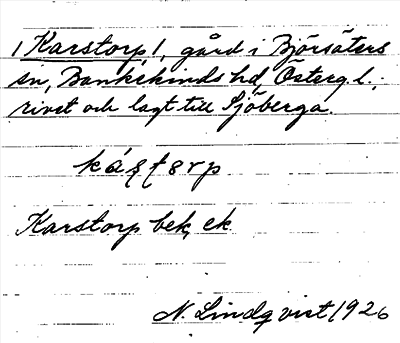 /Karstorp/, gård i Björsäters
sn, Bankekinds hd, Österg. l.;
rivet och lagt till Sjöberga.
Karstorp bek, ek
N. Lindqvist 1926